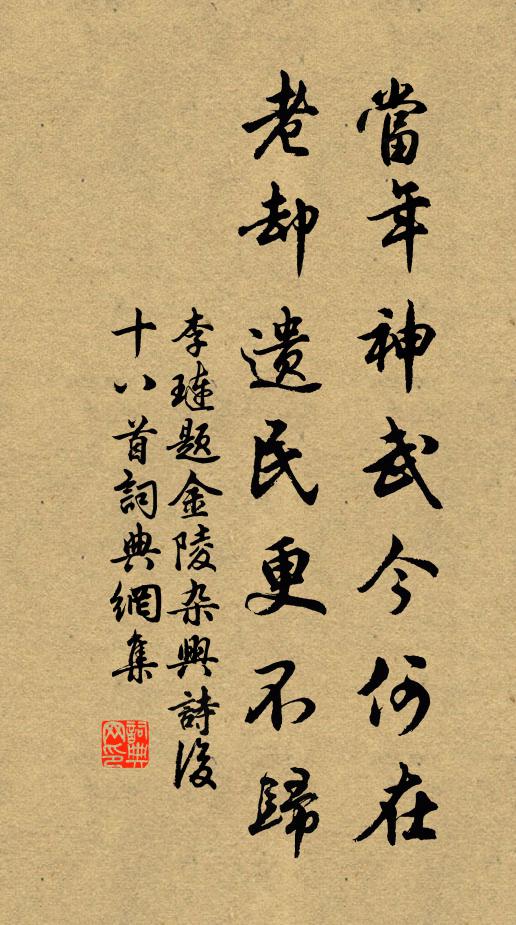 當年神武今何在
老却遺民更不歸
李璉題金陵杂興詩後
十八首詞典網集
詞典网印